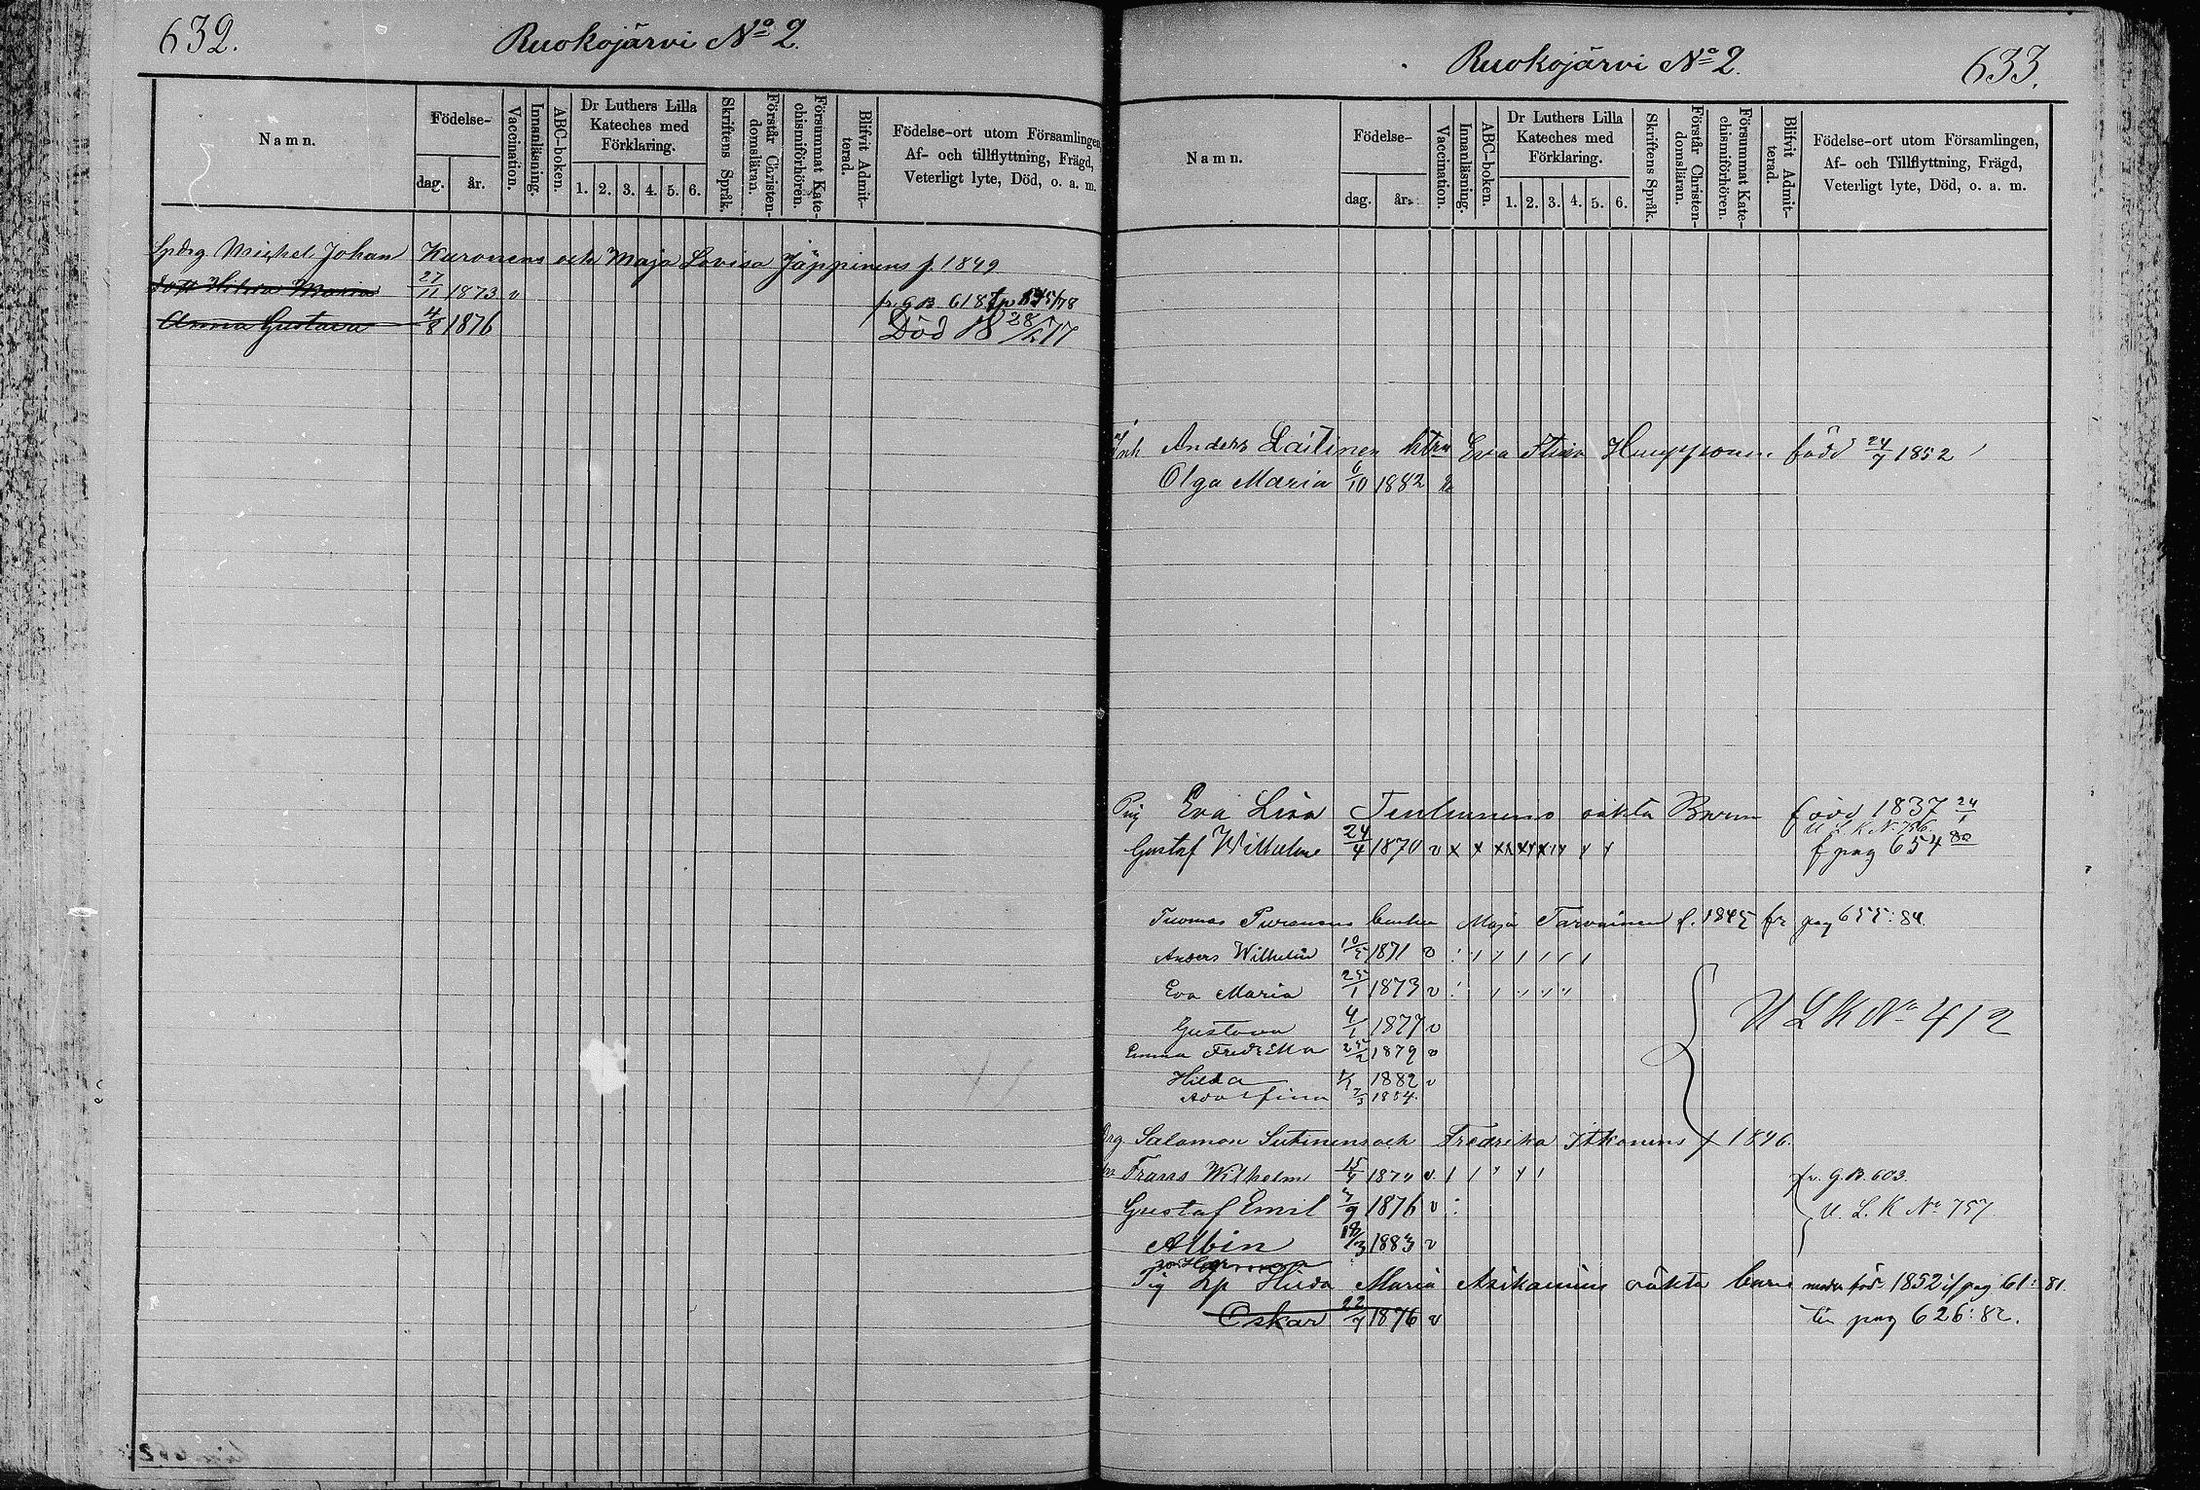 632.
Ruokojärvi No 2.
Namn.
Födelse-
dag.
år.
Vaccination.
Innanläsning.
ABC-boken.
Dr Luthers Lilla
Kateches med
Förklaring.
1. 2. 3. 4. 5. 6.
Skriftens Språk.
Förstår Christen-
domsläran.
Försummat Kate-
chismiförhören.
Blifvit Admit-
terad.
Födelse-ort utom Församlingen,
Af- och tillflyttning, Frägd,
Veterligt lyte, Död, o. a. m.
Michel Johan Kuronens och Maja Lovisa Jäppinens f. 1849
Maria 27/11 1873 v
Anna Gustava 4/8 1876 Död 18 28/ 77
Ruokojärvi No 2.
633.
Namn.
Födelse-
dag.
år.
Vaccination.
Innanläsning.
ABC-boken.
Dr Luthers Lilla
Kateches med
Förklaring.
1. 2. 3. 4. 5. 6.
Skriftens Språk.
Förstår Christen-
domsläran.
Försummat Kate-
chismiförhören.
Blifvit Admit-
terad.
Födelse-ort utom Församlingen,
Af- och Tillflyttning, Frägd,
Veterligt lyte, Död, o. a. m.
Inh Anders Laitinen Eva Stina född 24/7 1852
Olga Maria 6/10 1882
Pig Eva Lisa oäkta Barn född 1837 24/1
U L K No 756.
Gustaf Wilhelm 24/4 1870 v x x f pag 654 82
Thomas Purasens Maja Tarvainen f. 1845 fr pag 655:84.
Anders Wilhelm 10/5 1871 v
Eva Maria 25/1 1873 v
Gustava 4/1 1877 v
U L K No 412
Emma Fredrika 25/2 1879 v
Hilda 1882 v
Adolfina 7/3 1884.
Drg Salomon Sutinens och Fredrika Itkonens f 1846.
Frans Wilhelm 187 v fr. G.B. 603.
Gustaf Emil 7/9 1876 v
U. L. K No 757
Albin 18/3 1883 v
Pig Hilda Maria Asikainens oäkta barn moder född 1852 if pag 61:81.
Oskar 22/7 1876 v till pag 626:82.